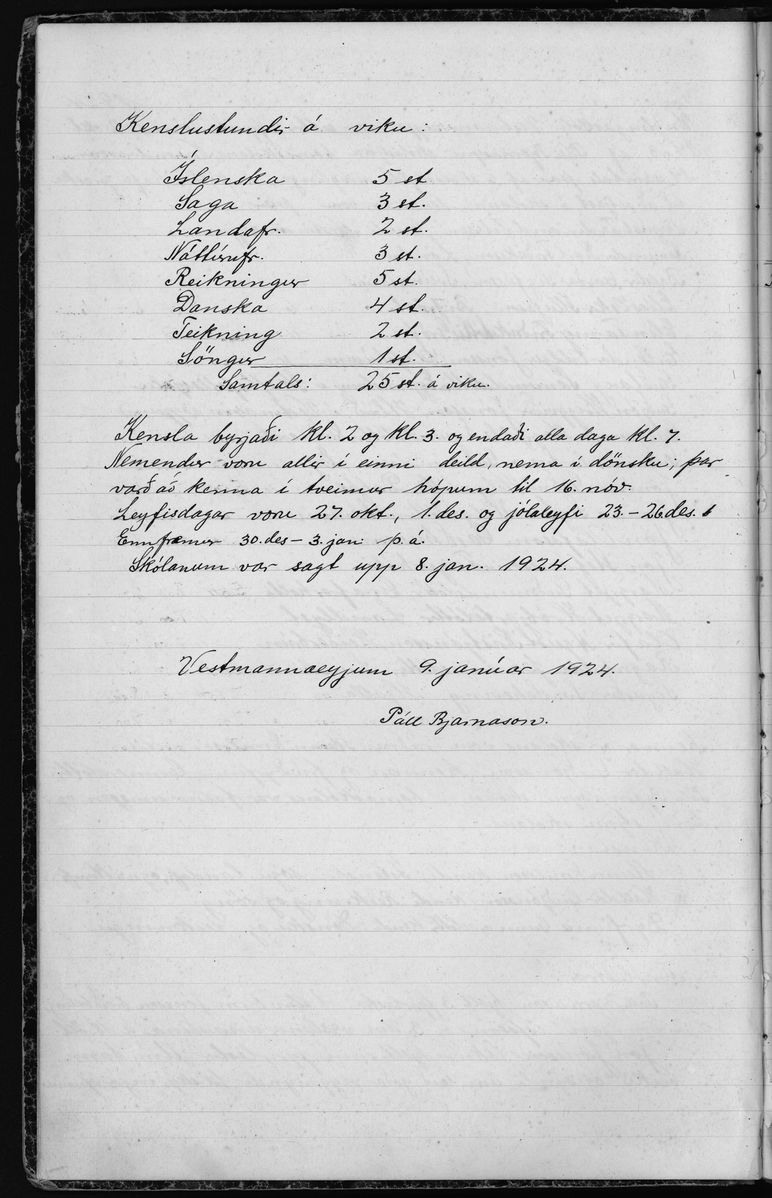 Kenslustundir á viku:
Íslenska 5 st
Saga 3 st.
Landafr. 2 st.
Náttúrufr. 3 st.
Reikningur 5 st.
Danska 4 st.
Teikning 2 st.
Söngur 1 st.
Samtals: 25 st. á viku.
Kensla byrjaði kl. 2 og kl. 3. og endaði alla daga kl. 7.
Nemendur voru allir í einni deild, nema í dönsku; þar
varð að kenna í tveimur hópum til 16. nóv.
Leyfisdagar voru 27. okt., 1. des. og jólaleyfi 23. – 26. des.
Ennfremur 30. des – 3. jan þ. á.
Skólanum var sagt upp 8. jan. 1924.
Vestmannaeyjum 9. janúar 1924.
Páll Bjarnason.